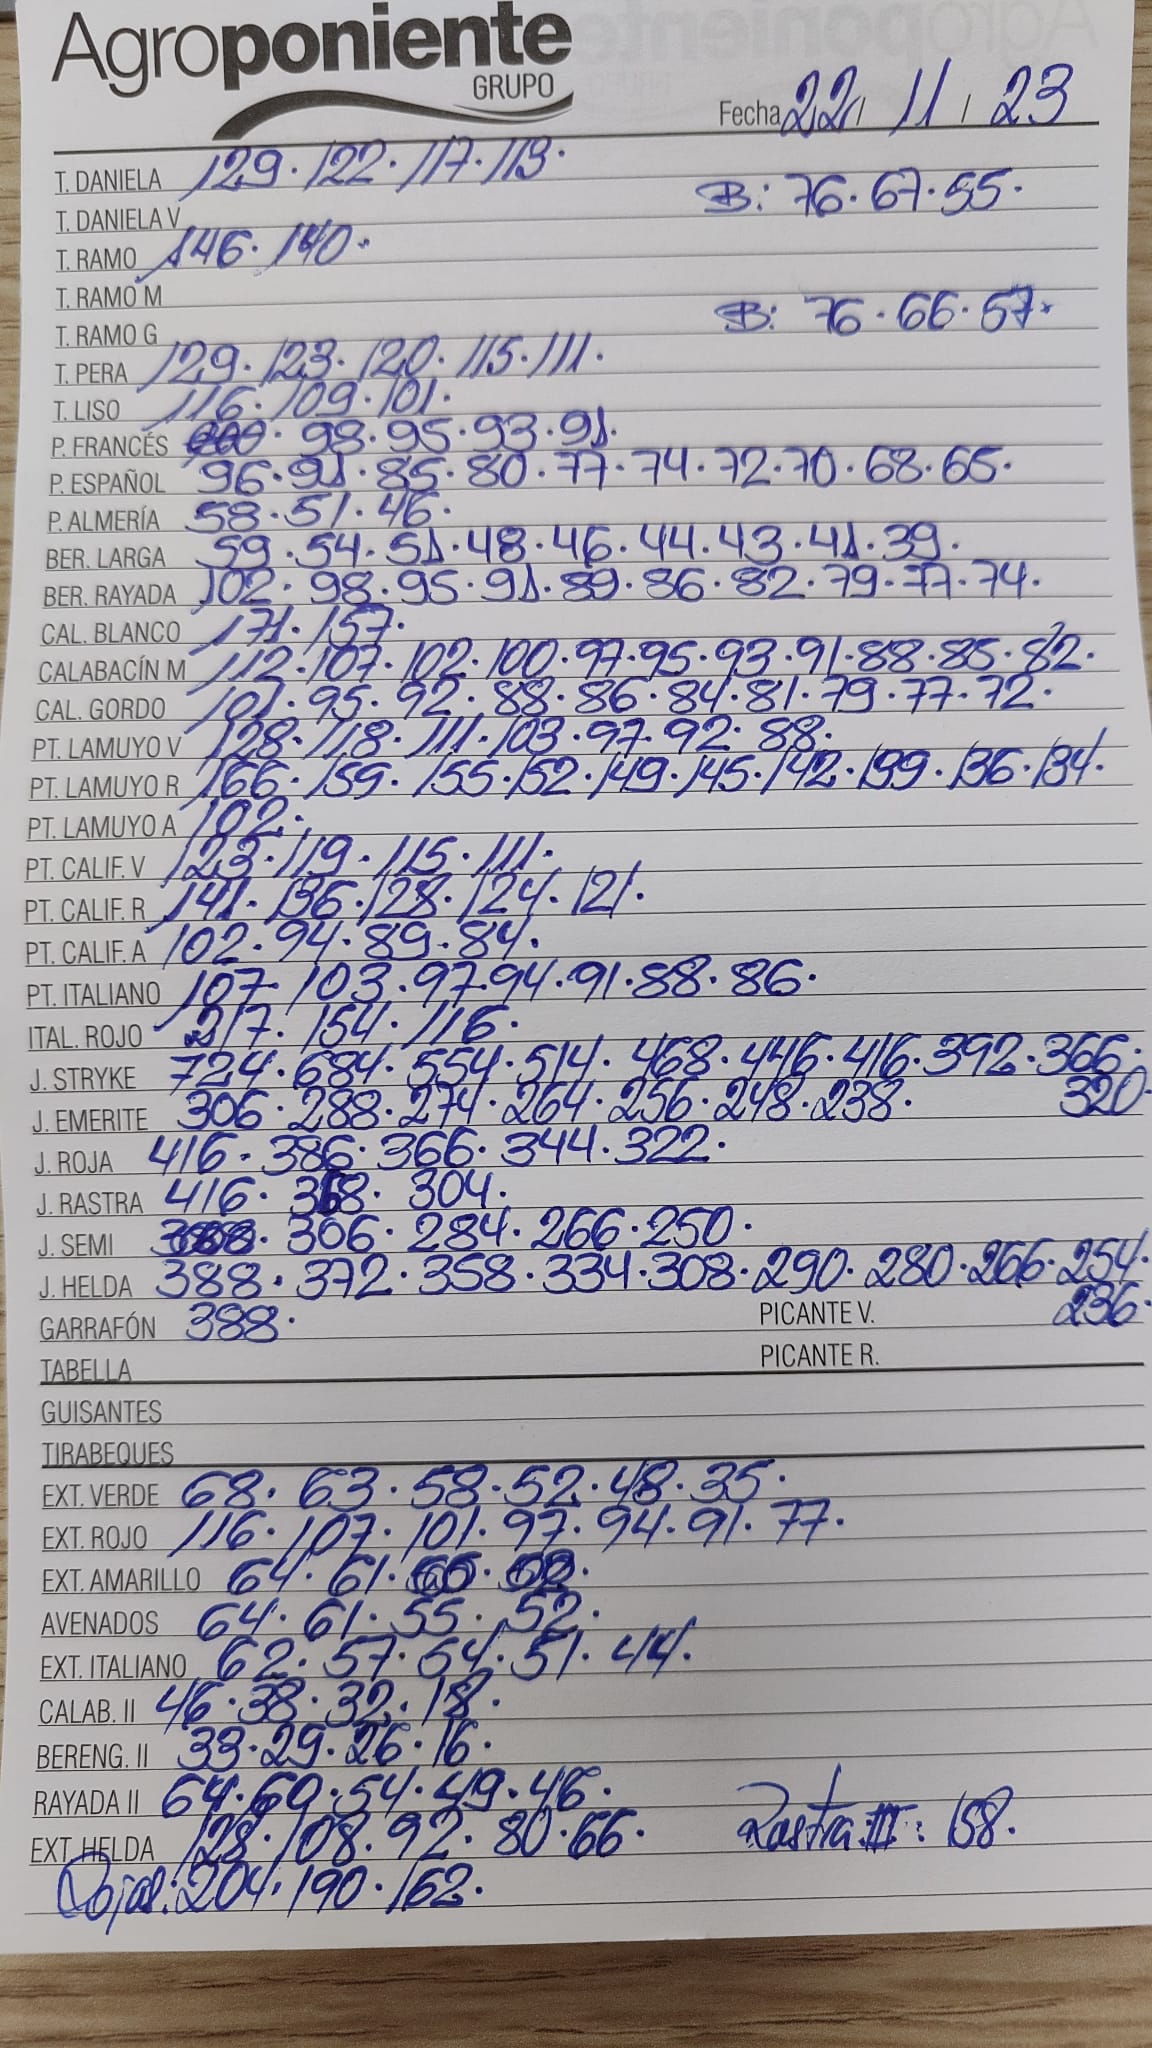 Agroponiente
GRUPO
Fecha 22 / 11 / 23
T. DANIELA 129. 122. 117. 113.
B: 76. 67. 55.
T. DANIELA V
T. RAMO 146. 140.
T. RAMO M
B: 76. 66. 57.
T. RAMO G
T. PERA 129. 123. 120. 115. 111.
T. LISO 116. 109. 101.
P. FRANCÉS 98. 95. 93. 91.
P. ESPAÑOL 96. 91. 85. 80. 77. 74. 72. 70. 68. 65.
P. ALMERÍA 58. 51. 46.
BER. LARGA 59. 54. 51. 48. 46. 44. 43. 41. 39.
BER. RAYADA 102. 98. 95. 91. 89. 86. 82. 79. 77. 74.
CAL. BLANCO 171. 157.
CALABACÍN M 112. 107. 102. 100. 97. 95. 93. 91. 88. 85. 82.
CAL. GORDO 101. 95. 92. 88. 86. 84. 81. 79. 77. 72.
PT. LAMUYO V 128. 118. 111. 103. 97. 92. 88.
PT. LAMUYO R 166. 159. 155. 152. 149. 145. 142. 139. 136. 134.
PT. LAMUYO A 102.
PT. CALIF. V 123. 119. 115. 111.
PT. CALIF. R 141. 136. 128. 124. 121.
PT. CALIF. A 102. 94. 89. 84.
PT. ITALIANO 107. 103. 97. 94. 91. 88. 86.
ITAL. ROJO 217. 154. 116.
J. STRYKE 724. 684. 554. 514. 468. 446. 416. 392. 366.
320.
J. EMERITE 306. 288. 274. 264. 256. 248. 238.
J. ROJA 416. 386. 366. 344. 322.
J. RASTRA 416. 304.
J. SEMI 306. 284. 266. 250.
J. HELDA 388. 372. 358. 334. 308. 290. 280. 266. 254.
236.
GARRAFÓN 388.
PICANTE V.
TABELLA
PICANTE R.
GUISANTES
TIRABEQUES
EXT. VERDE 68. 63. 58. 52. 48. 35.
EXT. ROJO 116. 107. 101. 97. 94. 91. 77.
EXT. AMARILLO 64. 61.
AVENADOS 64. 61. 55. 52.
EXT. ITALIANO 62. 57. 54. 51. 44.
CALAB. II 46. 38. 32. 18.
BERENG. II 33. 29. 26. 16.
RAYADA II 64. 60. 54. 49. 46.
EXT. HELDA 128. 108. 92. 80. 66.
Rastra II: 158.
Rojas: 204. 190. 162.